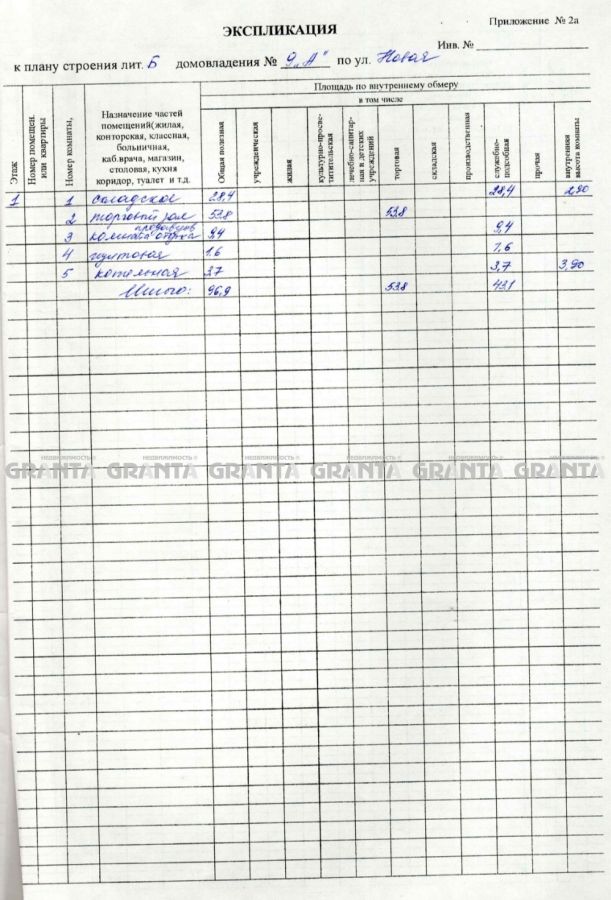 Приложение № 2а
ЭКСПЛИКАЦИЯ
Инв. №
к плану строения лит. Б домовладения № 9 „А" по ул. Новая
Этаж
Номер помещен. или квартиры
Номер комнаты,
Назначение частей
помещений(жилая,
конторская, классная,
больничная,
каб.врача, магазин,
столовая, кухня
коридор, туалет и т.д.
Площадь по внутреннему обмеру
в том числе
Общая полезная
учрежденческая
жилая
культурно-просве-
титительская
лечебно-санитар-
ная и детских
учреждений
торговая
складская
производственная
служебно-
подсобная
прочая
внутренняя
высота комнаты
1 1 складское 28,4 28,4 2,90
2 торговый зал 53,8 53,8
продавцов
3 комната отдыха 9,4 9,4
4 1,6 1,6
5 котельная 3,7 3,7 3,90
Итого: 96,9 53,8 43,1
НЕДВИЖИМОСТЬ НЕДВИЖИМОСТЬ НЕДВИЖИМОСТЬ НЕДВИЖИМОСТЬ НЕДВИЖИМОСТЬ
GRANTA GRANTA GRANTA GRANTA GRANTA GRANTA